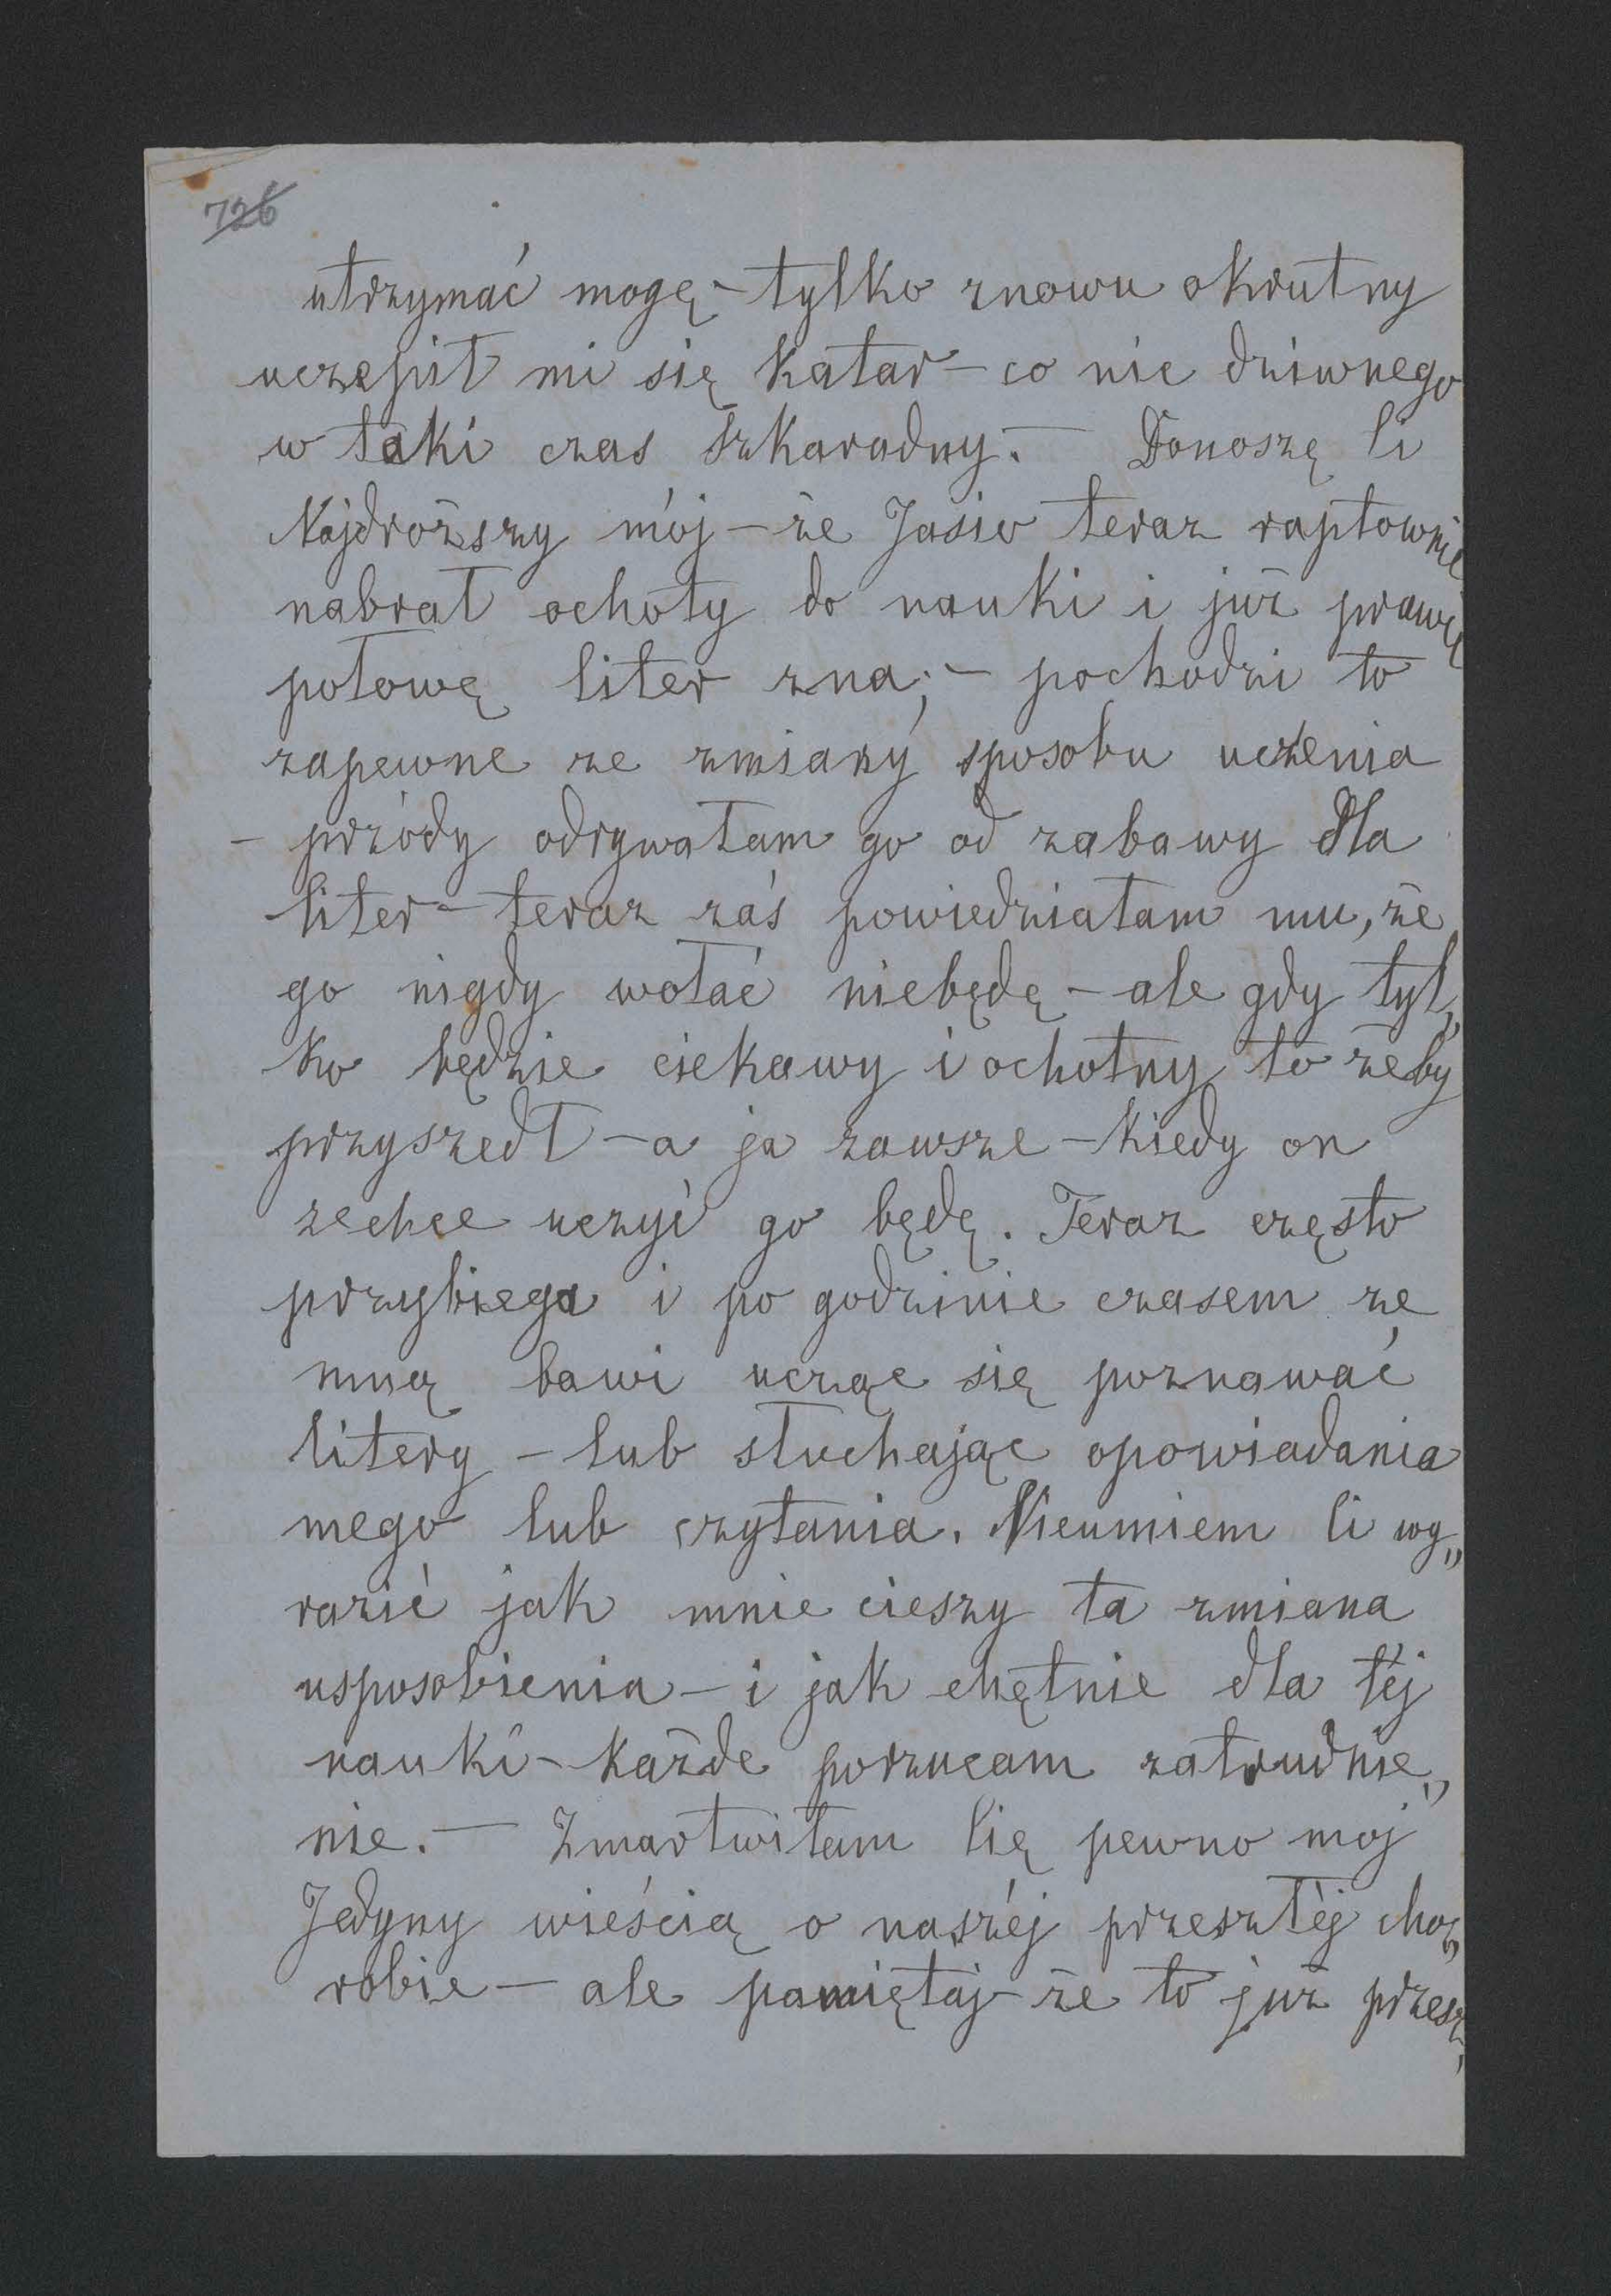 726
utrzymać mogę – tylko znowu okrutny
uczepił mi się katar – co nic dziwnego
w taki czas szkaradny. – Donoszę Ci
Najdroższy mój – że Jasio teraz raptownie
nabrał ochoty do nauki i już prawie
połowę liter zna; – pochodzi to
zapewne ze zmiany sposobu uczenia
– przódy odrywałam go od zabawy dla
liter – teraz zaś powiedziałam mu, że
go nigdy wołać niebędę – ale gdy tyl„
ko będzie ciekawy i ochotny to żeby
przyszedł – a ja zawsze – kiedy on
zechce uczyć go będę. Teraz często
przybiega i po godzinie czasem ze
mną bawi ucząc się poznawać
litery – lub słuchając opowiadania
mego lub czytania. Nieumiem Ci wy„
razić jak mnie cieszy ta zmiana
usposobienia – i jak chętnie dla téj
nauki – każde porzucam zatrudnie„
nie. – Zmartwiłam Cię pewno mój
Jedyny wieścią o naszéj przeszłéj cho„
robie – ale pamiętaj – że to już przesz„